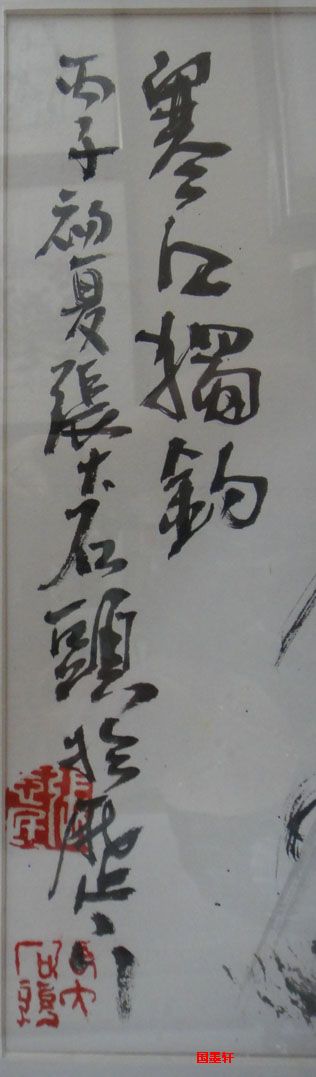 寒江獨釣
丙子初夏張大石頭於
国墨轩